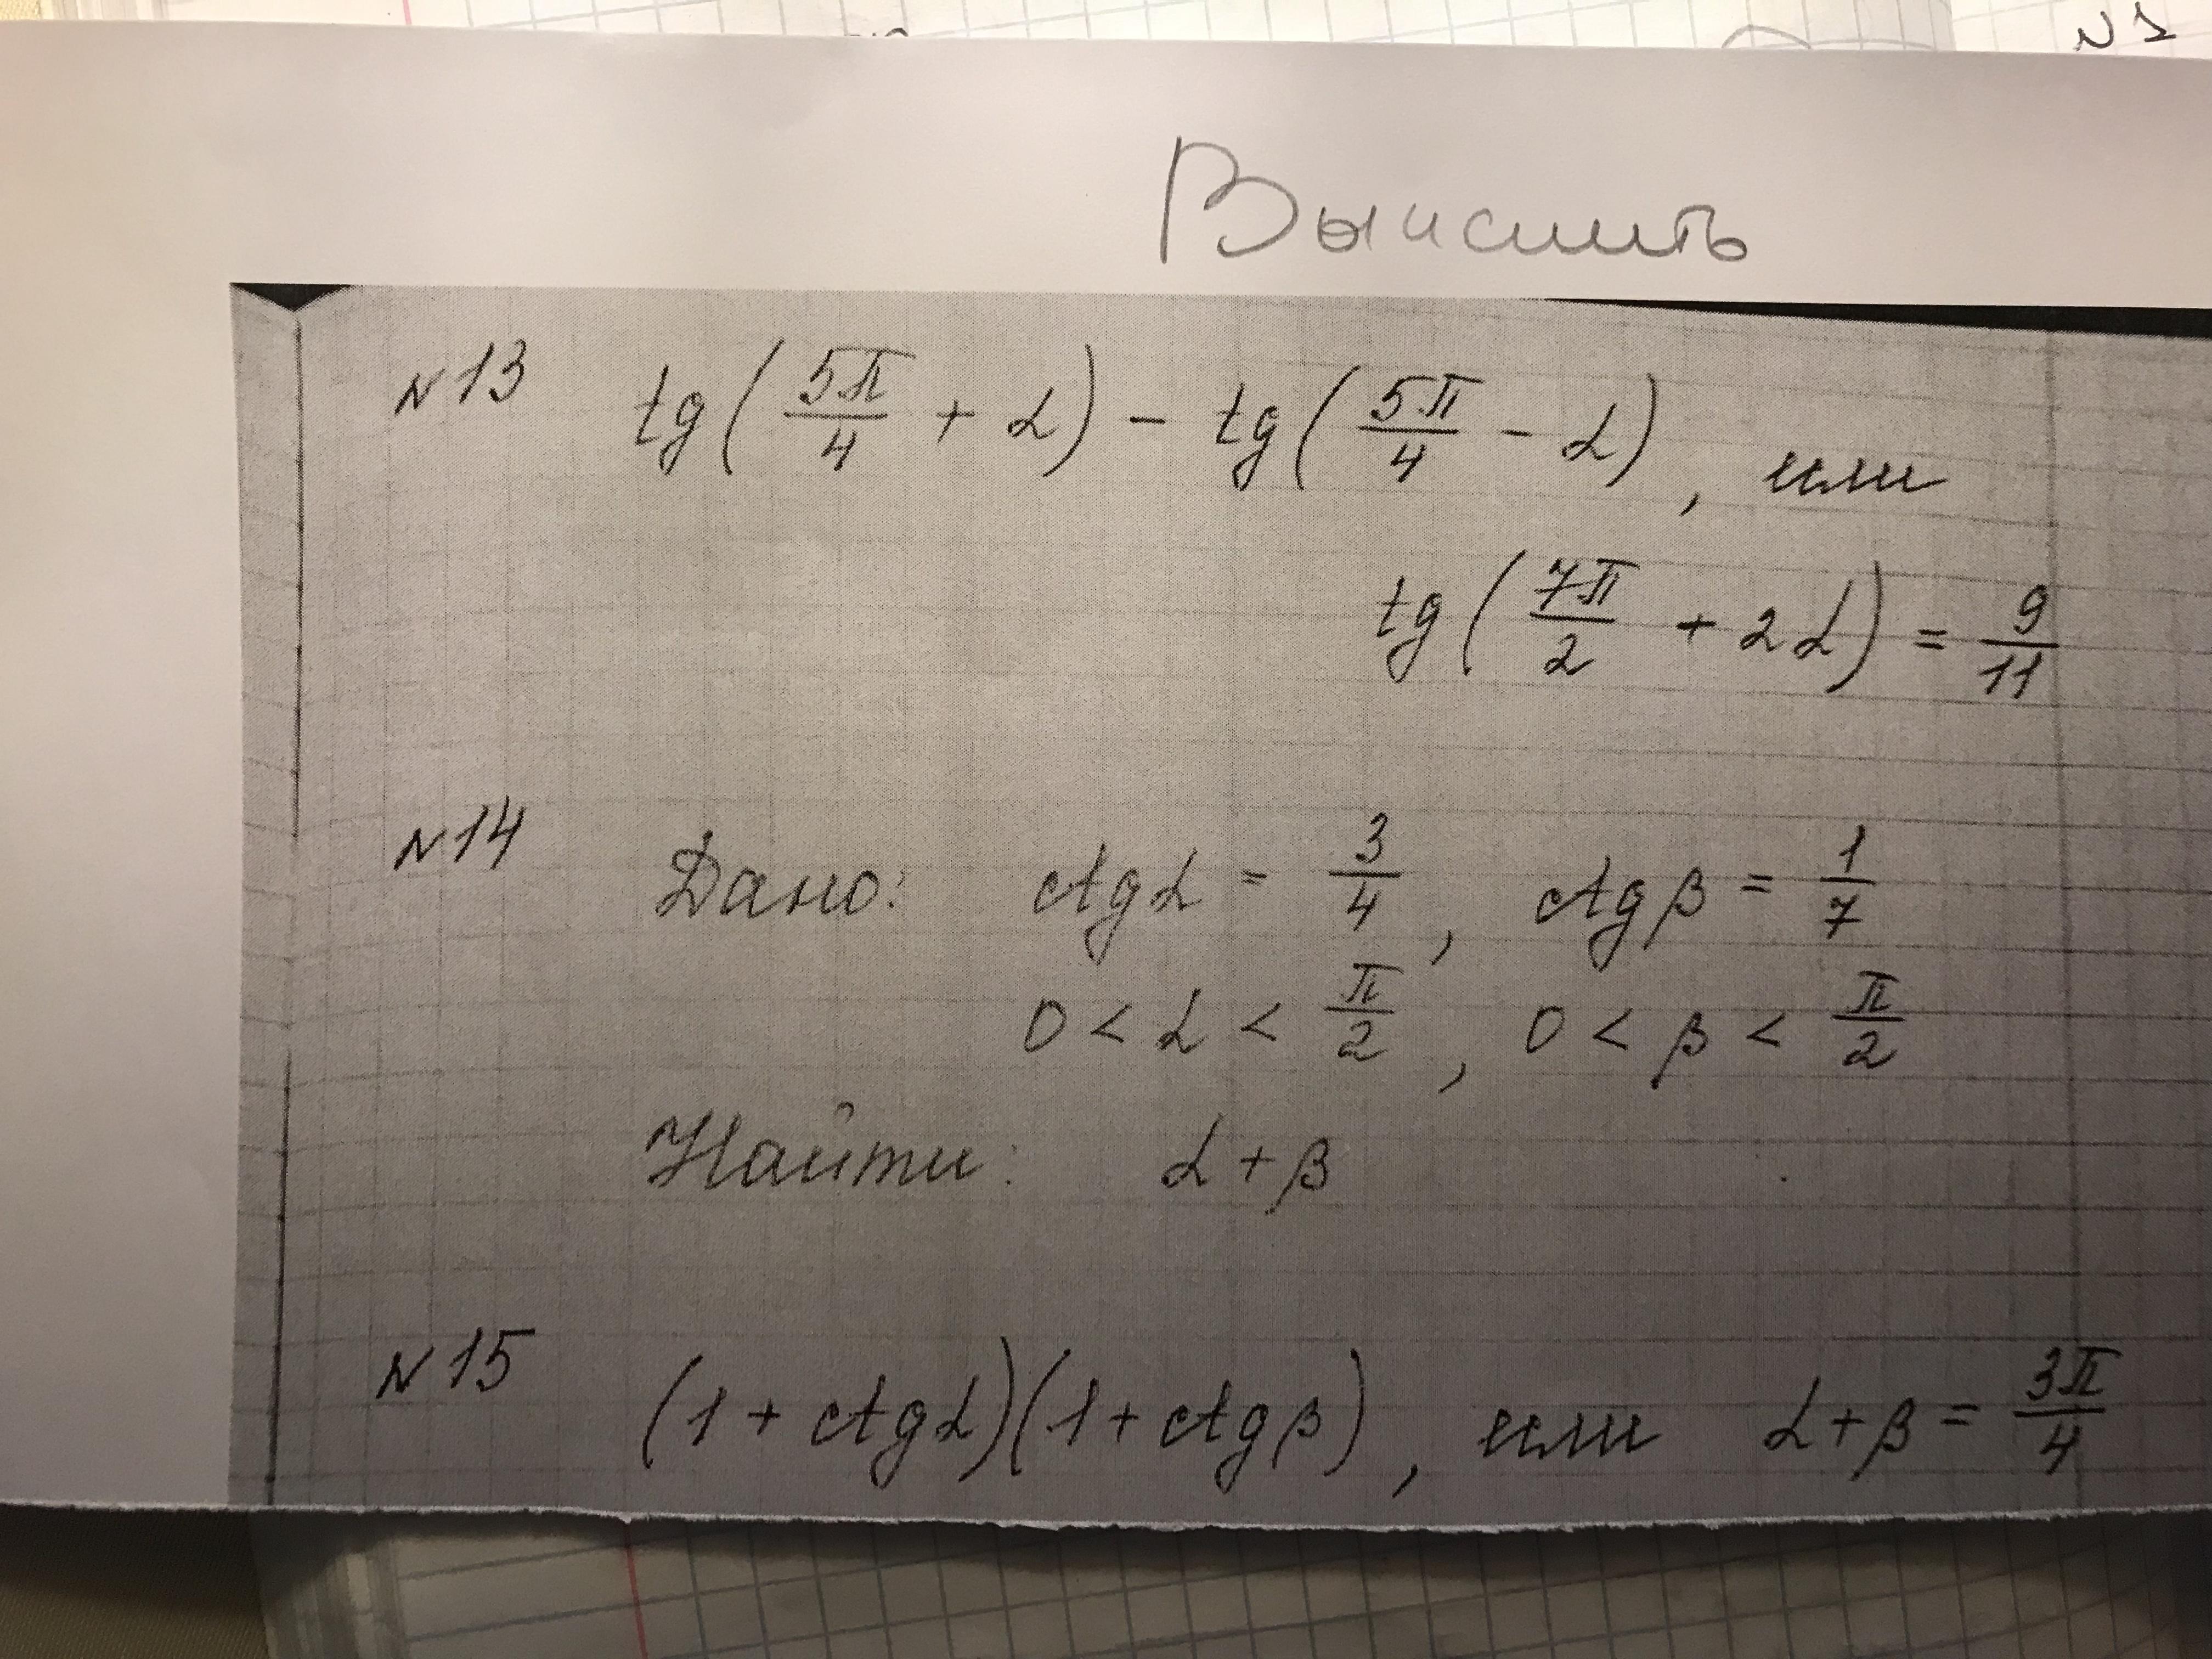 N 1
Вычислить
N13 tg(5π/4 + α) - tg(5π/4 - α), или
tg(7π/2 + 2α) = 9/11
N14 Дано: ctgα = 3/4, ctgβ = 1/7
0 < α < π/2, 0 < β < π/2
Найти: α + β
N15 (1 + ctgα)(1 + ctgβ), или α + β = 3π/4